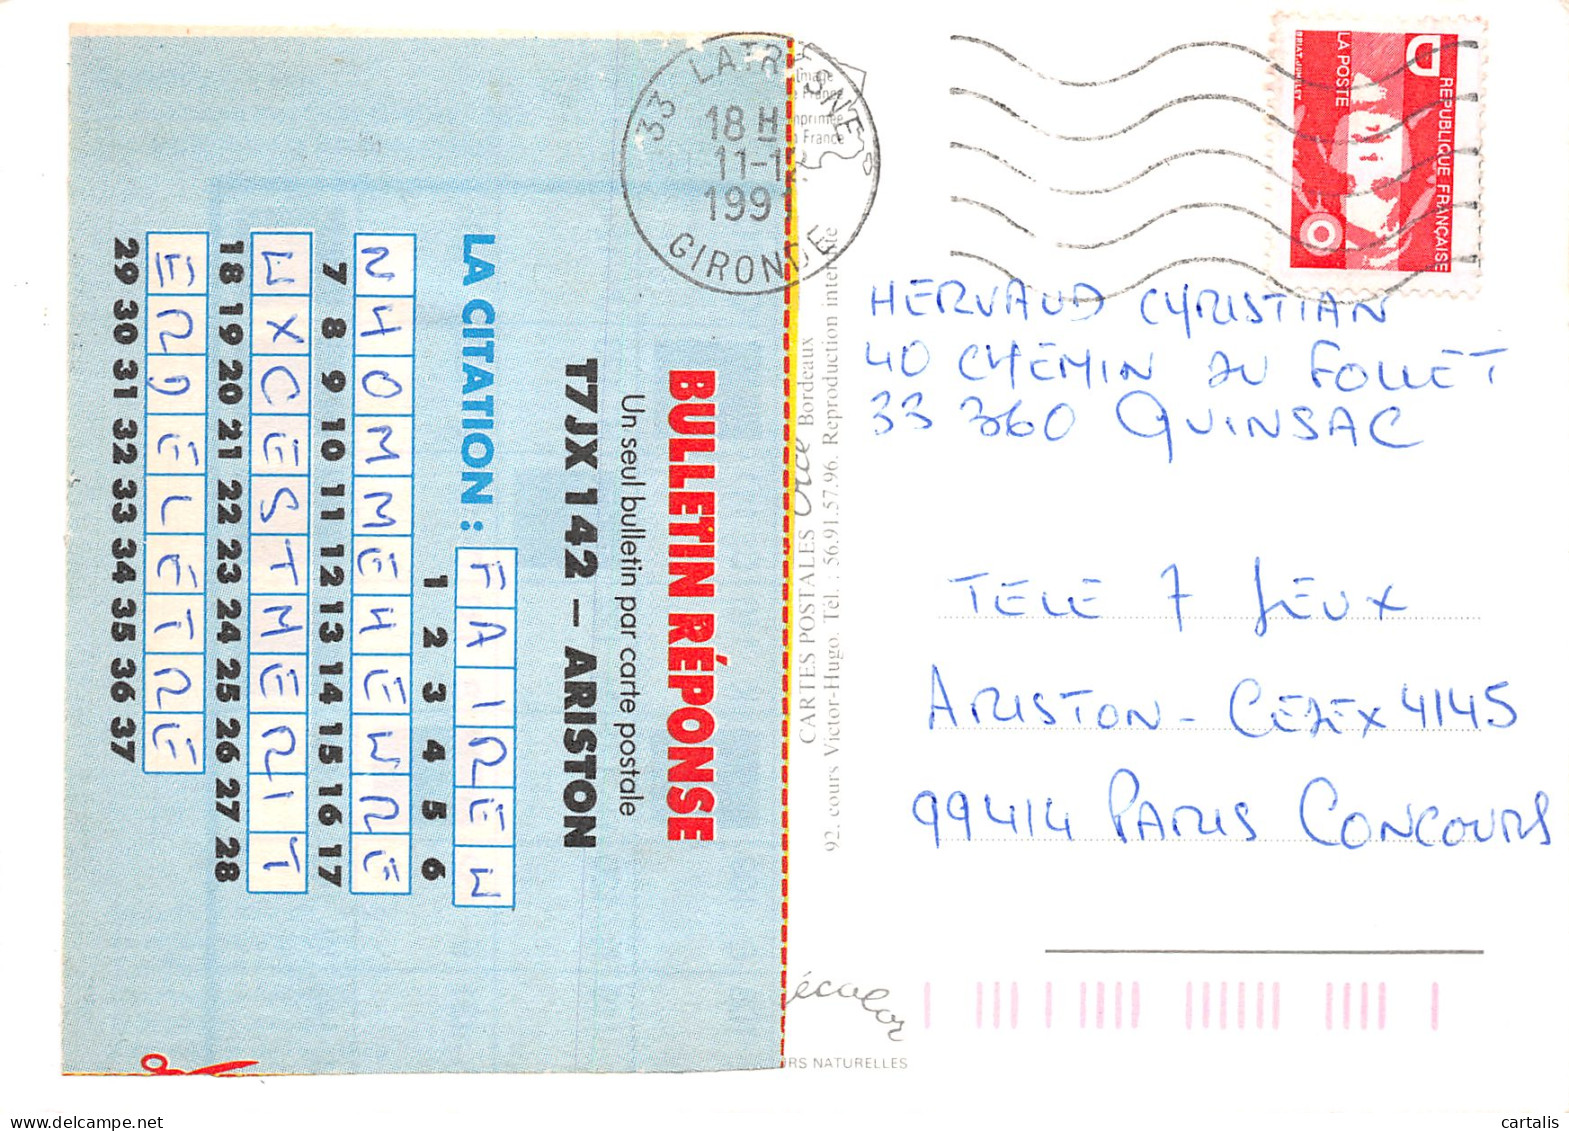 BULLETIN RÉPONSE
Un seul bulletin par carte postale
T7JX 142 – ARISTON
LA CITATION : F A I R E U
1 2 3 4 5 6
N H O M M E H E U R E
7 8 9 10 11 12 13 14 15 16 17
U X C E S T M E R I T
18 19 20 21 22 23 24 25 26 27 28
E R D E L E T R E
29 30 31 32 33 34 35 36 37
CARTES POSTALES Bordeaux
92, cours Victor-Hugo. Tél. : 56.91.57.96. Reproduction interdite
33 LATRESNE
18 H
11-12
1991
GIRONDE
Image
France
imprimée
France
D
REPUBLIQUE FRANÇAISE
LA POSTE
BRIAT. JUMELET
HERVAUD CHRISTIAN
40 CHEMIN DU FOLLET
33 360 QUINSAC
TELE 7 JEUX
ARISTON - CEDEX 4145
99414 PARIS CONCOURS
écolor
RS NATURELLES
cartalis